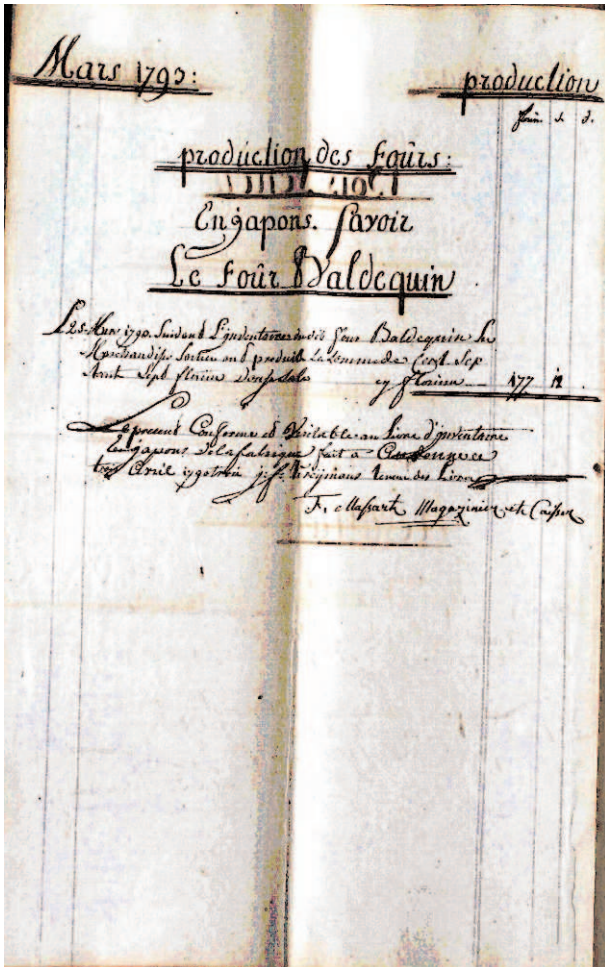 Mars 1793:
production
florin. s. d.
production des Fours:
En Japons. Savoir
Le Four Baldequin
Le 25 Mars 1793. Suivant L'inventaire du dit four Baldequin Les
Marchandises Sorties ont produit La Somme de Cent Sep
tante Sept florins douze Sols
cy florins 177 12
Le present Conforme et Veritable au Livre d'inventaire
En Japons de la fabrique fait a Andenne ce
trois Avril 1793 trois Teneur des Livres
F. Massart Magazinier et Caissier